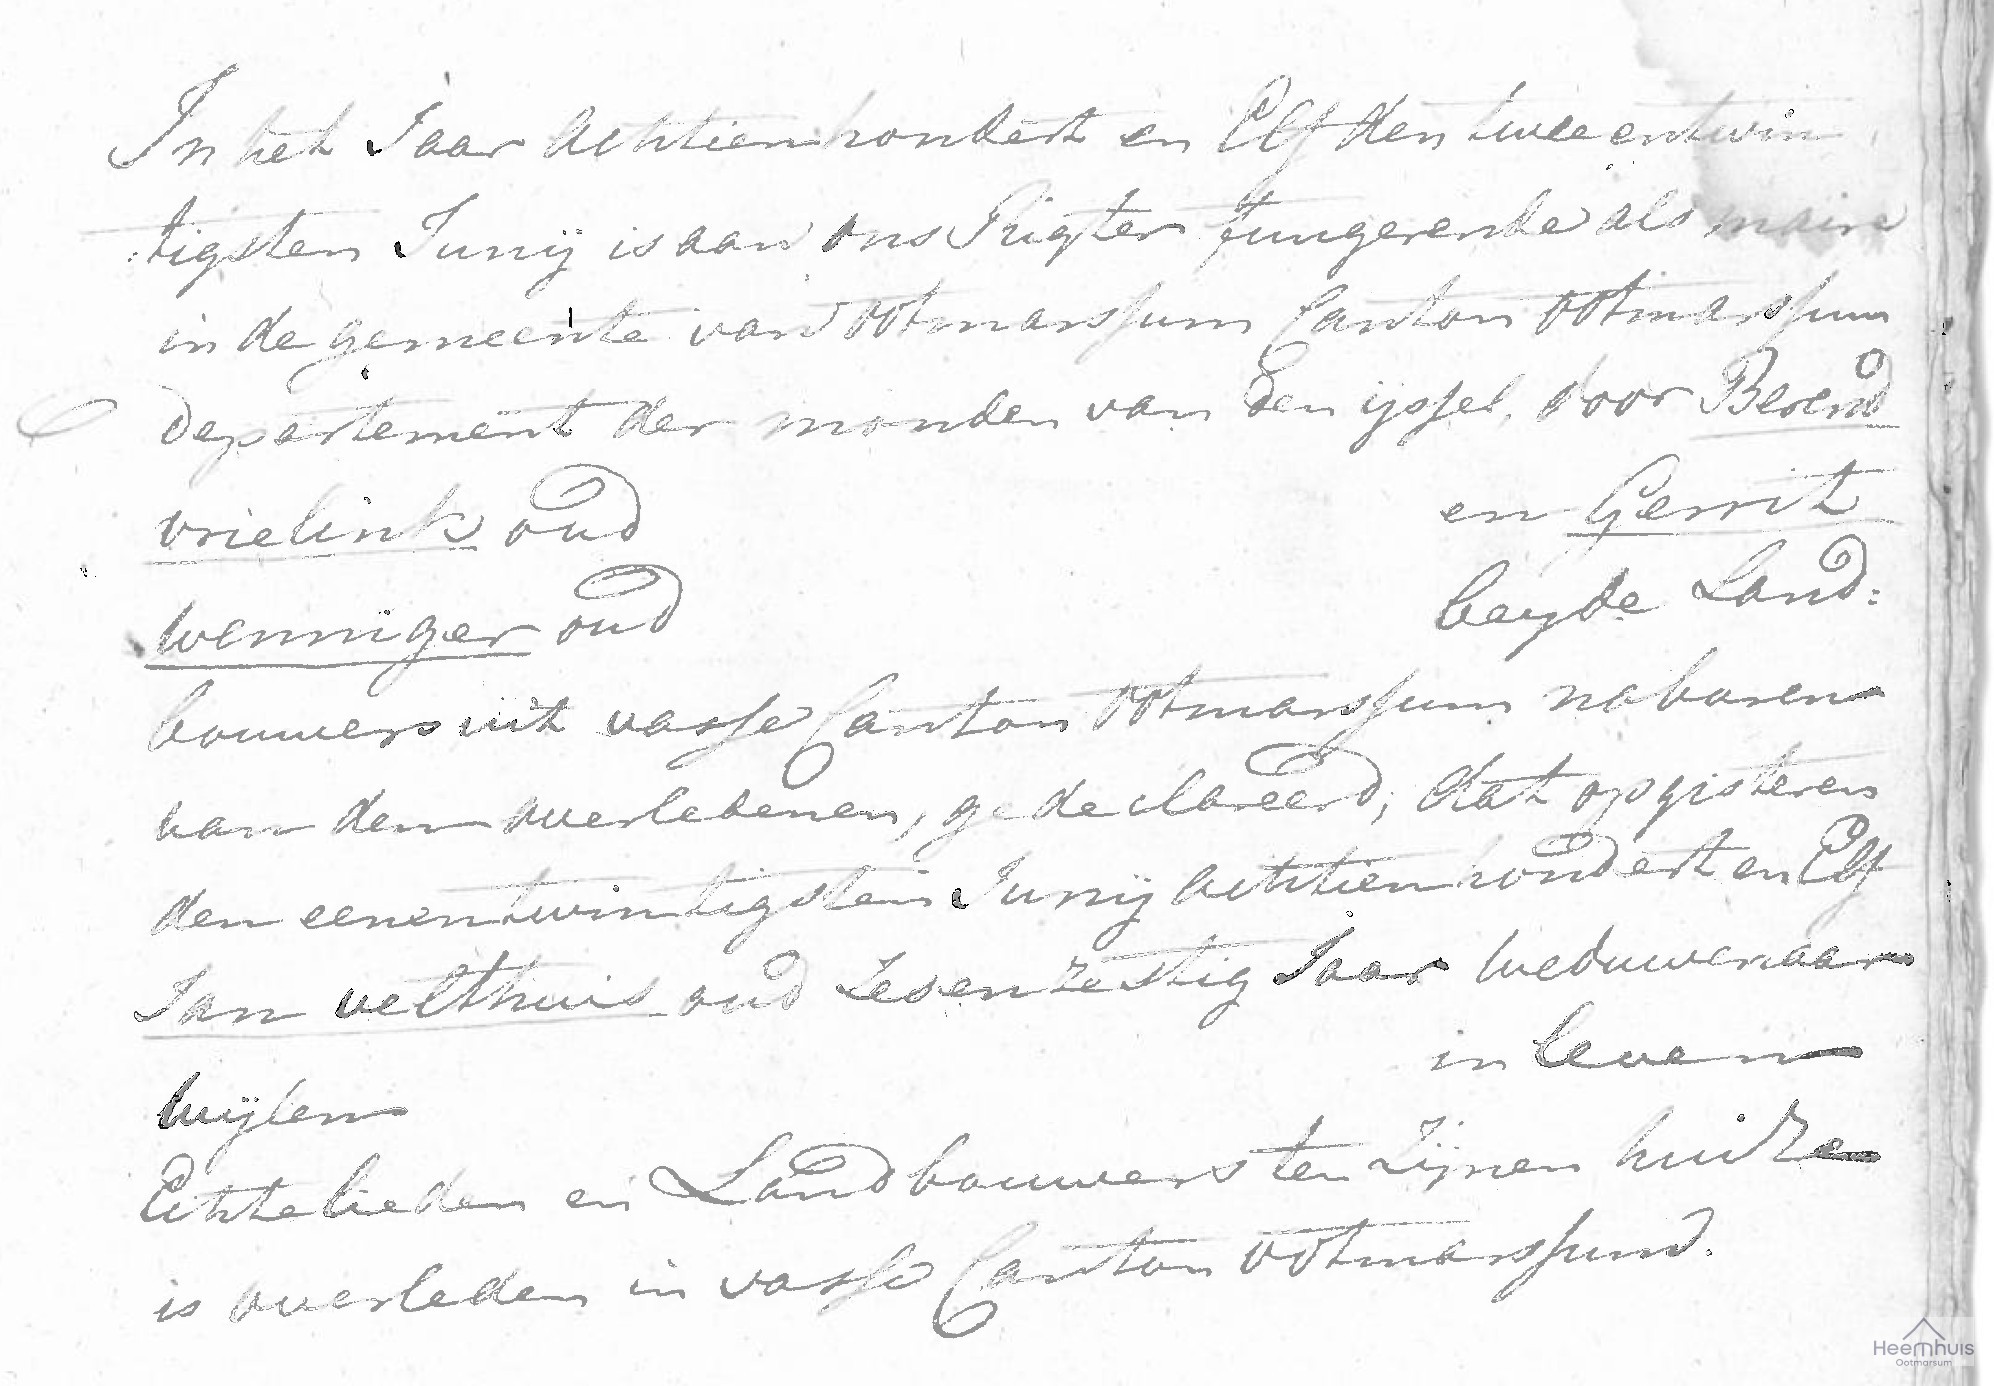 In het Jaar Achtienhondert en Elf den twee entwin
:tigsten Junij is aan ons Rigter fungerende als maire
in de gemeente van Ootmarssum Canton Ootmarssum
departement der monden van den ijssel, door Berend
vrielink oud en Gerrit
wenniger oud beyde Land:
bouwers uit vasse Canton Ootmarssum naburen
van den overledenen, gedeclareerd, dat op gisteren
den eenentwintigsten Junij Achtienhondert en Elf
Jan velthuis oud Zesenzestig Jaar Weduwenaar
in leven
Wijlen
Echtelieden en Landbouwers ten Zijnen huize
is overleden in vasse Canton Ootmarssum.
Heemhuis
Ootmarsum